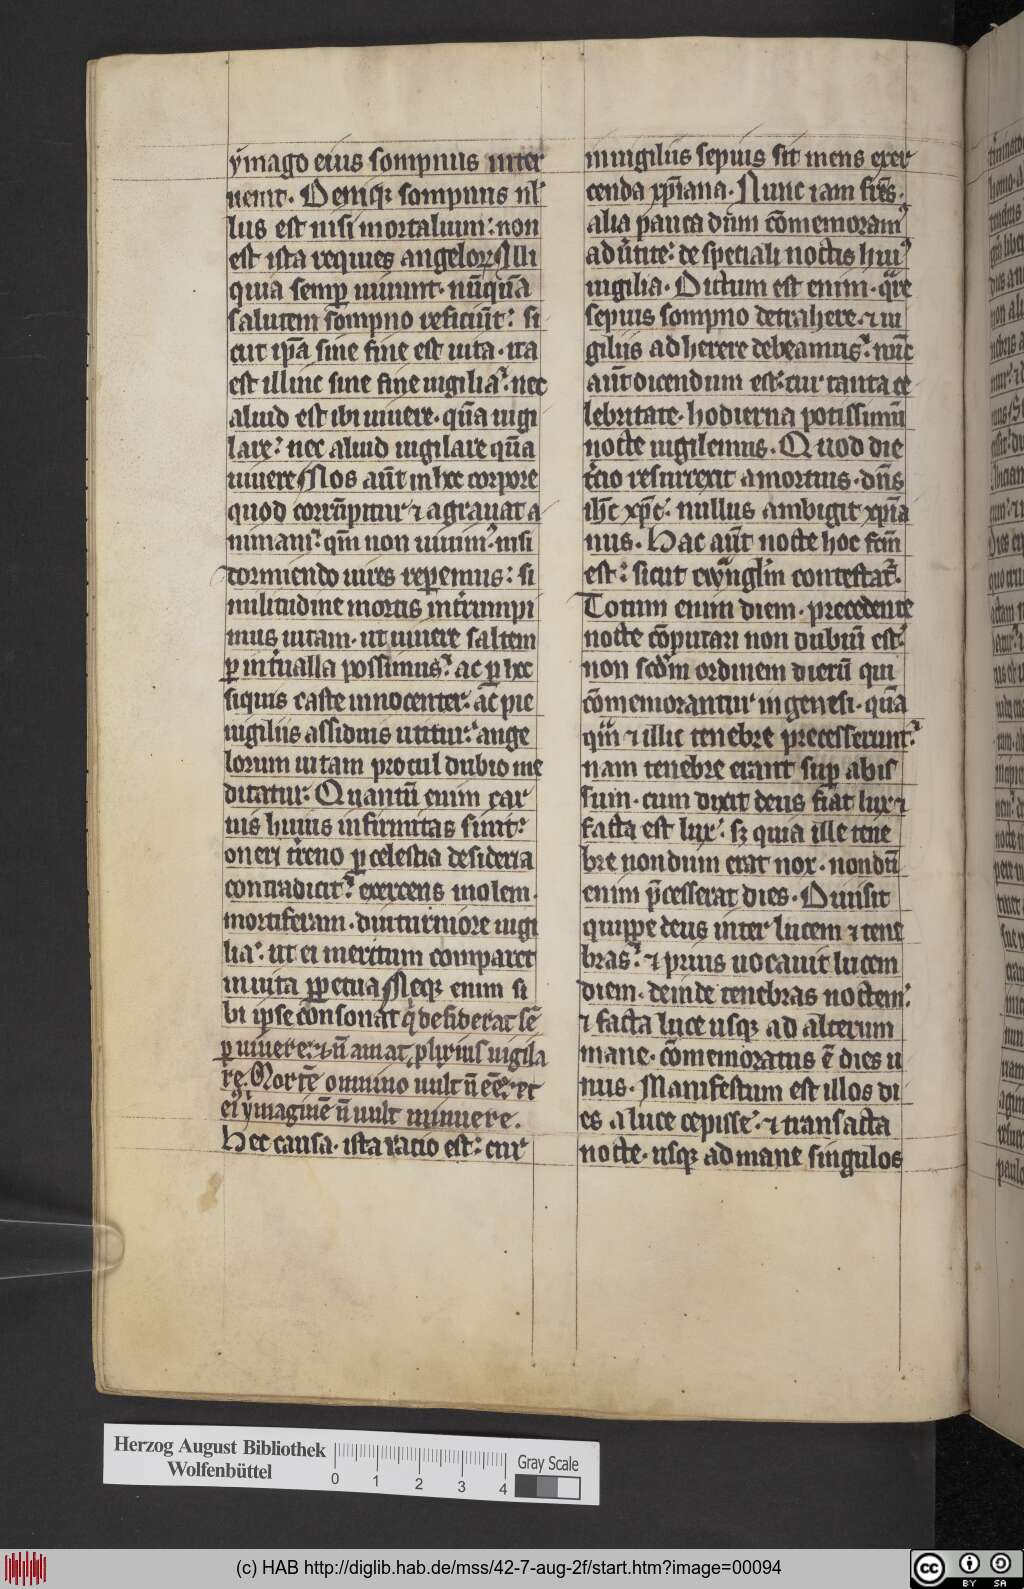 ymago eius sompnus inter
uenit. Deniq; sompnus nl̄
lus est nisi mortalium: non
est ista requies angelorꝝ Illi
quia semꝑ uiuunt. nūquā
salutem sompno reficiūt: si
cut ip̄a sine fine est uita. ita
est illinc sine fine uigilia: nec
aliud est ibi uiuere. quā uigi
lare: nec aliud uigilare quā
uiuere Nos aūt in hoc corpore
quod corrūpitur ⁊ agrauat a
nimam: qm̄ non uiuim᷒. nisi
dormiendo uires repemus: si
militudine mortis int̓rumpi
mus uitam. ut uiuere saltem
ꝑ int̓ualla possimus: ac ꝑ hoc
siquis caste innocenter. ac pie
uigiliis assiduis utitur: ange
lorum uitam procul dubio me
ditatur: Quantū enim car
nis huius infirmitas sinit:
oneri t̓reno ꝑ celestia desideria
contradicit: exercens molem.
mortiferam. diuturniore uigi
lia: ut ei meritum comparet
in uita ꝑpetua Neq; enim si
bi ipse consonat q̇ desiderat sē
ꝑ uiuere: ⁊ n̄ amat ꝓlixius uigila
re. Mortē omnino uult n̄ eē: et
ei᷒ ymaginē n̄ uult minuere.
Hec causa. ista racio est: cur
in uigiliis sepius sit mens exer
cenda xp̄iana. Nunc iam fr̄es.
alia pauca dum cōmemoram᷒
aduertite: de speciali noctis hui᷒
uigilia. Dictum est enim. quare
sepius sompno detrahere. ⁊ ui
giliis adherere debeamus: nūc
aūt dicendum est: cur tanta ce
lebritate. hodierna potissimū
nocte uigilemus. Quod die
t̓cio resurrexit a mortuis. dn̄s
ih̄c xp̄c: nullus ambigit xp̄ia
nus. Hac aūt nocte hoc fc̄m
est: sicut ewanglm̄ contestat̓.
Totum enim diem. precedente
nocte cōputari non dubiū est:
non scd̄m ordinem dierū qui
cōmemorantur in genesi. quā
quā ⁊ illic tenebre precesserunt:
nam tenebre erant suꝑ abis
sum. cum dixit deus fiat lux ⁊
facta est lux: sꝫ quia ille tene
bre nondum erat nox. nondū
enim p̄cesserat dies. Diuisit
quippe deus inter lucem ⁊ tene
bras: ⁊ prius uocauit lucem
diem. deinde tenebras noctem:
⁊ facta luce usq; ad alterum
mane. cōmemoratus ē dies u
nus. Manifestum est illos di
es a luce cepisse: ⁊ transacta
nocte. usq; ad mane singulos
Herzog August Bibliothek
Wolfenbüttel
0 1 2 3 4
Gray Scale
(c) HAB http://diglib.hab.de/mss/42-7-aug-2f/start.htm?image=00094
cc BY SA